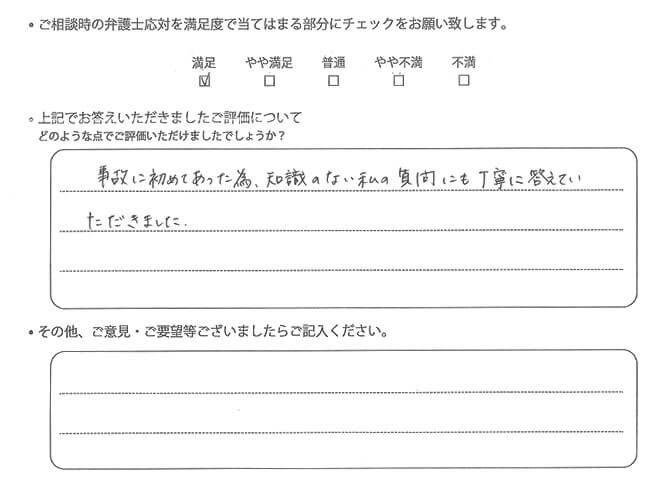 • ご相談時の弁護士応対を満足度で当てはまる部分にチェックをお願い致します。
満足 やや満足 普通 やや不満 不満
☑ □ □ □ □
◦ 上記でお答えいただきましたご評価について
どのような点でご評価いただけましたでしょうか？
事故に初めてあった為、知識のない私の質問にも丁寧に答えてい
ただきました.
• その他、ご意見・ご要望等ございましたらご記入ください。